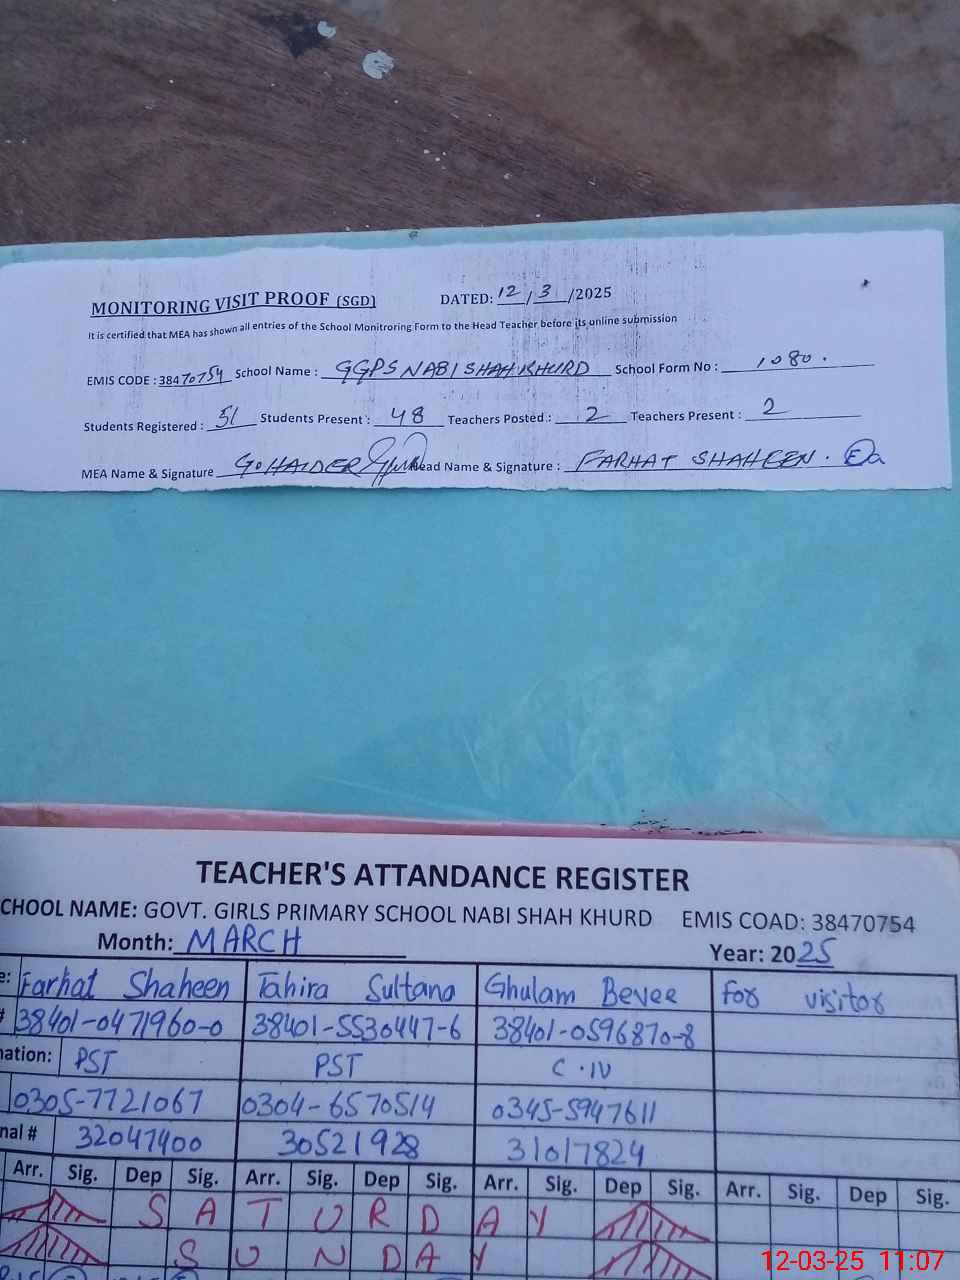 MONITORING VISIT PROOF (SGD) DATED: 12/3/2025
It is certified that MEA has shown all entries of the School Monitroring Form to the Head Teacher before its online submission
EMIS CODE : 38470754 School Name : GGPS NABI SHAH KHURD School Form No : 1080.
Students Registered : 51 Students Present : 48 Teachers Posted : 2 Teachers Present : 2
MEA Name & Signature G. HAIDER Head Name & Signature : FARHAT SHAHEEN.
TEACHER'S ATTANDANCE REGISTER
CHOOL NAME: GOVT. GIRLS PRIMARY SCHOOL NABI SHAH KHURD EMIS COAD: 38470754
Month: MARCH Year: 2025
e: Farhat Shaheen Tahira Sultana Ghulam Bevee For visitor
# 38401-0471960-0 38401-5530447-6 38401-0596870-8
nation: PST PST C.IV
0305-7721067 0304-6570514 0345-5947611
nal # 32047400 30521928 31017824
Arr. Sig. Dep Sig. Arr. Sig. Dep Sig. Arr. Sig. Dep Sig. Arr. Sig. Dep Sig.
SATURDAY
SUNDAY
12-03-25 11:07